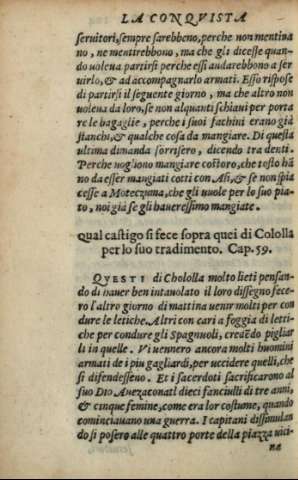 LA CONQVISTA
seruitori, sempre sarebbeno, perche non mentiua
no, ne mentirebbono, ma che gli dicesse quan-
do voleua partirsi perche essi andarebbono a ser
uirlo, & ad accompagnarlo armati. Esso rispose
di partirsi il seguente giorno, ma che altro non
voleua da loro, se non alquanti schiaui per porta
re le bagaglie, perche i suoi fachini erano già
stanchi, & qualche cosa da mangiare. Di questa
ultima dimanda sorrisero, dicendo tra denti.
Perche vogliono mangiare costoro, che tosto hã
no da esser mangiati cotti con Asi, & se non spia
cesse a Moteczuma, che gli vuole per lo suo pia-
to, noi già se gli haueressimo mangiate.
Qual castigo si fece sopra quei di Cololla
per lo suo tradimento. Cap. 59.
QVESTI di Chololla molto lieti pensan-
do di hauer ben intauolato il loro dissegno fece-
ro l'altro giorno di mattina uenir molti per con
dure le letiche. Altri con cari a foggia di letti-
che per condure gli Spagnuoli, creẽdo pigliar
li in quelle. Vi uennero ancora molti huomini
armati de i piu gagliardi, per uccidere quelli, che
si difendesseno. Et i sacerdoti sacrificarono al
suo DIO Auezaconatl dieci fanciulli di tre anni,
& cinque femine, come era lor costume, quando
cominciauano una guerra. I capitani dissimulan
do si posero alle quattro porte della piazza uici-
na